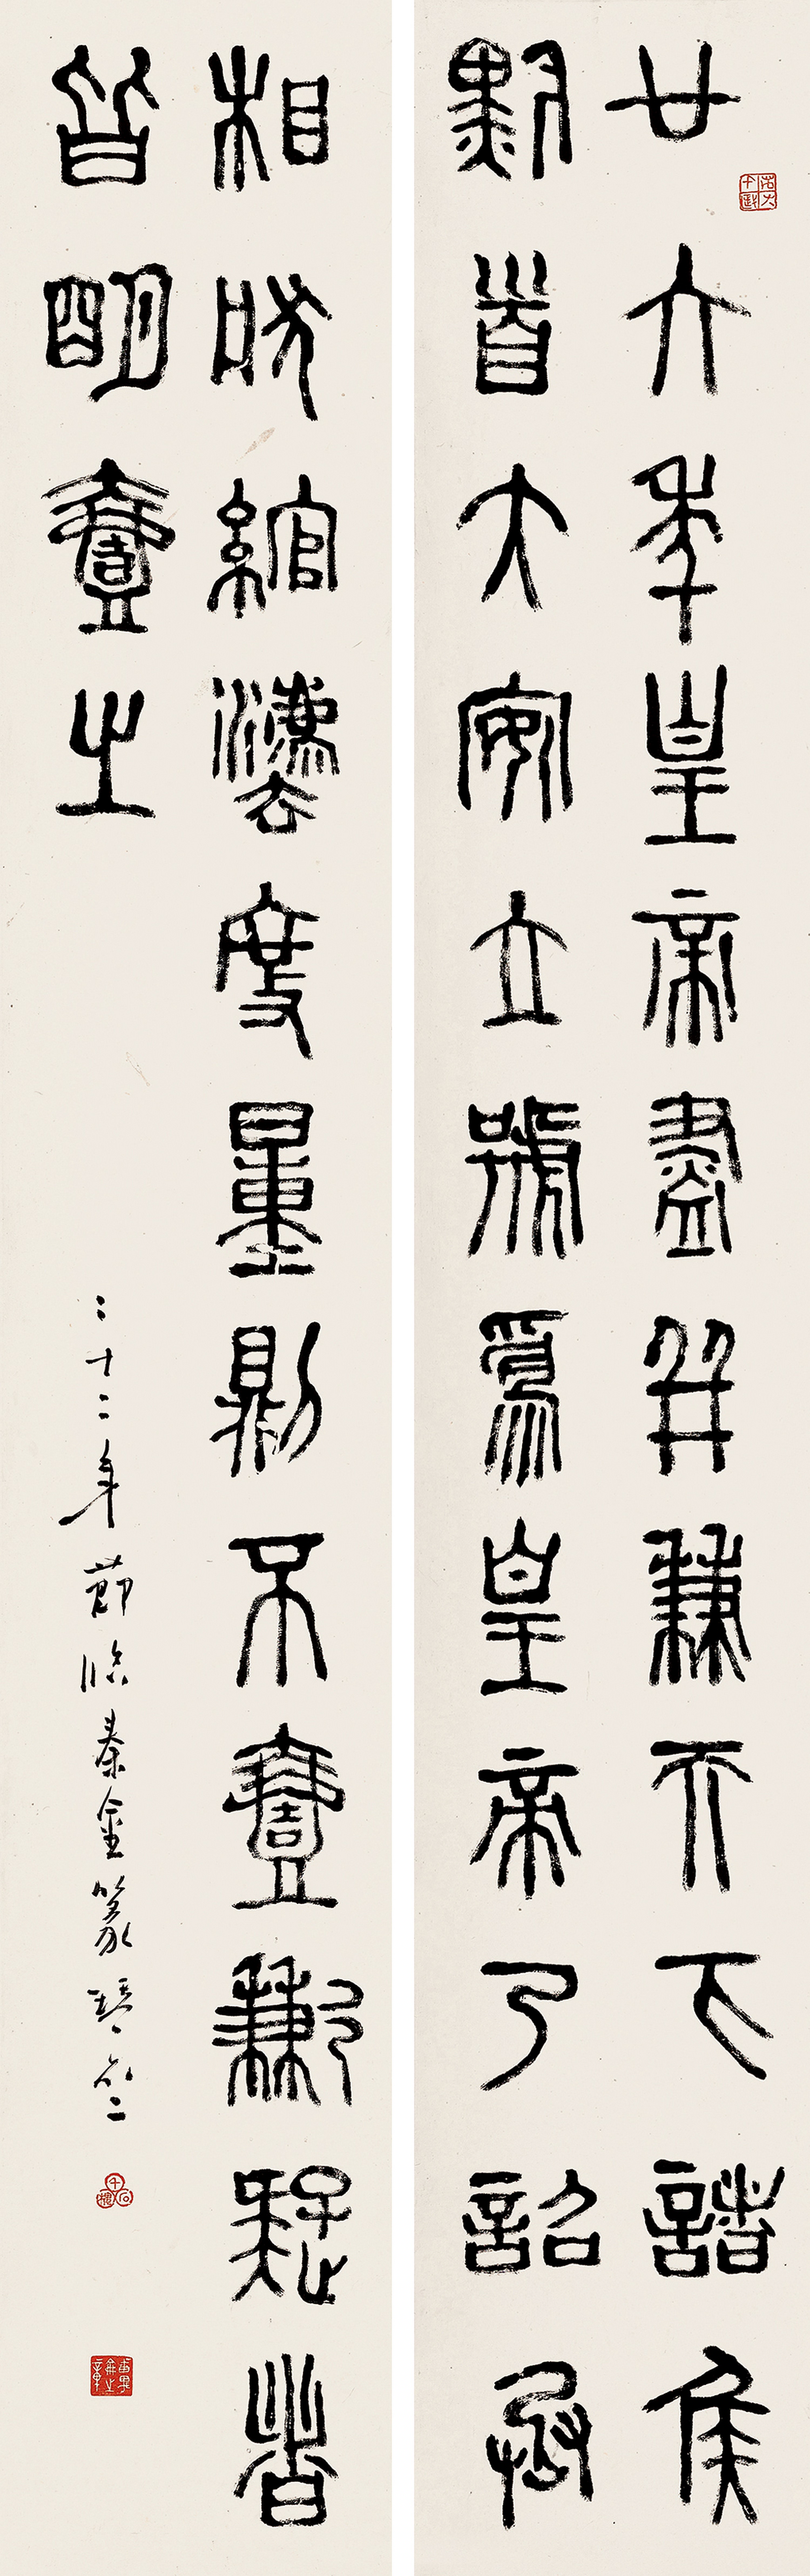 廿六年皇帝盡并兼天下諸侯
黔首大安立號爲皇帝乃詔丞
相狀綰灋度量則不壹歉疑者
皆明壹之
二十二年節臨秦金篆